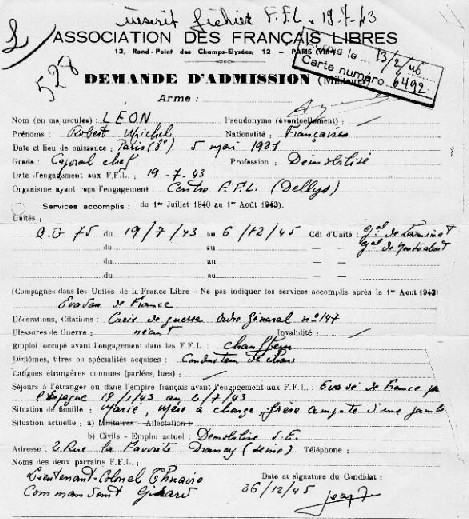 inscrit fichier F.F.L. 19-7-43
ASSOCIATION DES FRANÇAIS LIBRES
13, Rond-Point des Champs-Elysées, 12 - PARIS
le 13/2/46
Carte numéro 6492
528
DEMANDE D'ADMISSION
Arme :
Nom (en majuscules) : LÉON Pseudonyme (éventuellement) :
Prénoms : Robert Michel Nationalité : Française
Date et lieu de naissance : Paris 5 mai 1921
Grade : Caporal chef Profession : Démobilisé
Date d'engagement aux F.F.L. : 19-7-43
Organisme ayant reçu l'engagement : Centre F.F.L. (Dellys)
Services accomplis : du 1er Juillet 1940 au 1er Août 1943.
Unités :
Q.G 75 du 19/7/43 au 6/12/45 Cdt d'Unité : Gal de
du au
du au
du au
(Compagnes dans les Unités de la France Libre - Ne pas indiquer les services accomplis après le 1er Août 1943)
Evadé de France
Décorations, Citations : Croix de guerre Ordre Général n° 147
Blessures de Guerre : néant Invalidité :
Emploi occupé avant l'engagement dans les F.F.L. : chauffeur
Diplômes, titres ou spécialités acquises : Conducteur
Langues étrangères connues (parlées, lues) :
Séjours à l'étranger ou dans l'empire français avant l'engagement aux F.F.L. : Evadé de France par
l'Espagne 19/1/43 au 6/7/43
Situation de famille : Marié, mère à charge, frère amputé d'une jambe
Situation actuelle : a) Militaires - Allocation :
b) Civils - Emploi actuel : Démobilisé
Adresse : 2 Rue la Favorite Drancy (Seine) Téléphone :
Noms des deux parrains F.F.L. :
Lieutenant-Colonel
Commandant
Date et signature du Candidat :
26/12/45